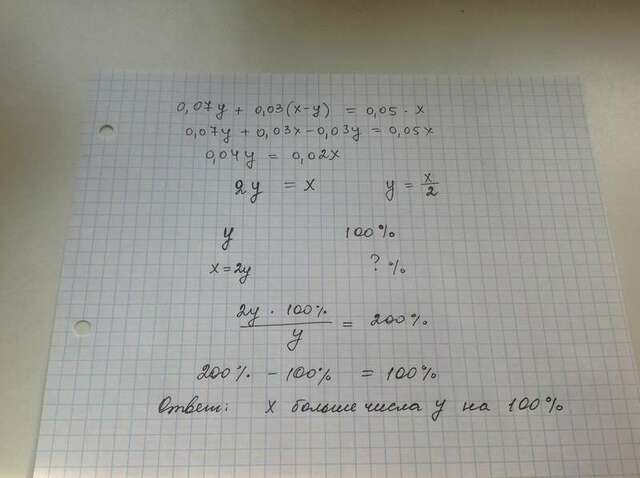 0,07y + 0,03(x-y) = 0,05 · x
0,07y + 0,03x - 0,03y = 0,05x
0,04y = 0,02x
2y = x y = x/2
y 100%
x = 2y ? %
2y · 100% / y = 200%
200% - 100% = 100%
Ответ: x больше числа y на 100%